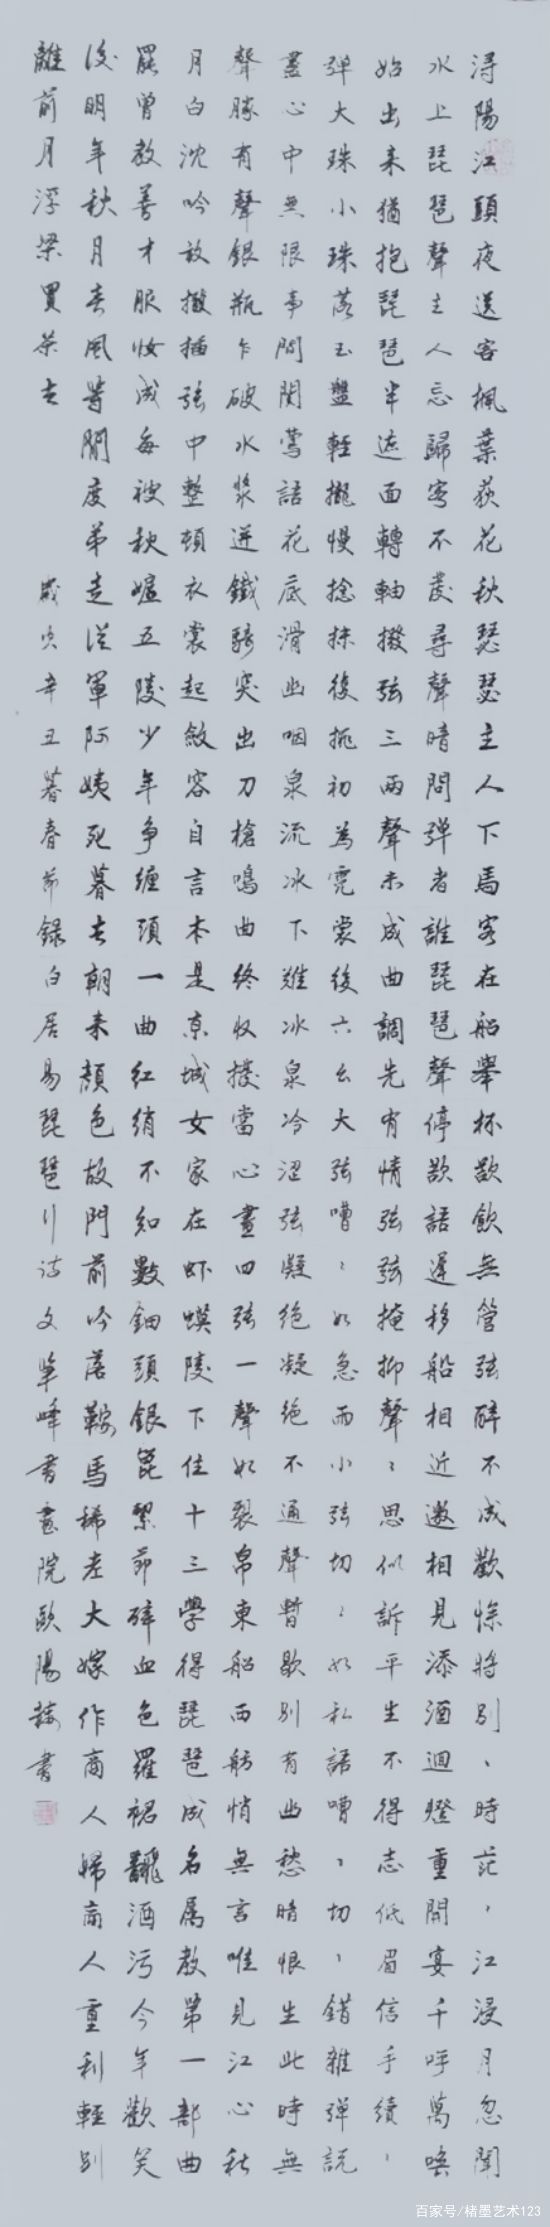 浔陽江頭夜送客楓葉荻花秋瑟瑟主人下馬客在船舉杯欲飲無管弦醉不成歡慘將別、時茫、江浸月忽聞
水上琵琶聲主人忘歸客不發尋聲暗問弹者誰琵琶聲停欲語遲移船相近邀相見添酒迴燈重開宴千呼萬喚
始出来猶抱琵琶半遮面轉軸撥弦三兩聲未成曲調先有情弦弦掩抑聲、思似訴平生不得志低眉信手續、
弹大珠小珠落玉盤輕攏慢捻抹復挑初為霓裳後六幺大弦嘈、如急雨小弦切、如私語嘈、切、錯雜弹説
盡心中無限事間関鶯語花底滑幽咽泉流冰下難冰泉冷涩弦凝绝凝绝不通聲暫歇別有幽愁暗恨生此時無
聲勝有聲銀瓶乍破水漿迸鐵騎突出刀槍鳴曲終收撥當心畫四弦一聲如裂帛東船西舫悄無言唯見江心秋
月白沈吟放撥插弦中整頓衣裳起斂容自言本是京城女家在虾蟆陵下住十三學得琵琶成名属教第一部曲
罷曾教善才服妆成每被秋五陵少年争缠頭一曲红绡不知數鈿頭銀篦擊節碎血色羅裙翻酒污今年歡笑
復明年秋月春風等閒度弟走從軍阿姨死暮去朝来顏色故門前冷落鞍馬稀老大嫁作商人婦商人重利輕別
離前月浮梁買茶去
歲次辛丑暮春節録白居易琵琶行詩文筆峰書畫院歐陽書
百家号/楮墨艺术123